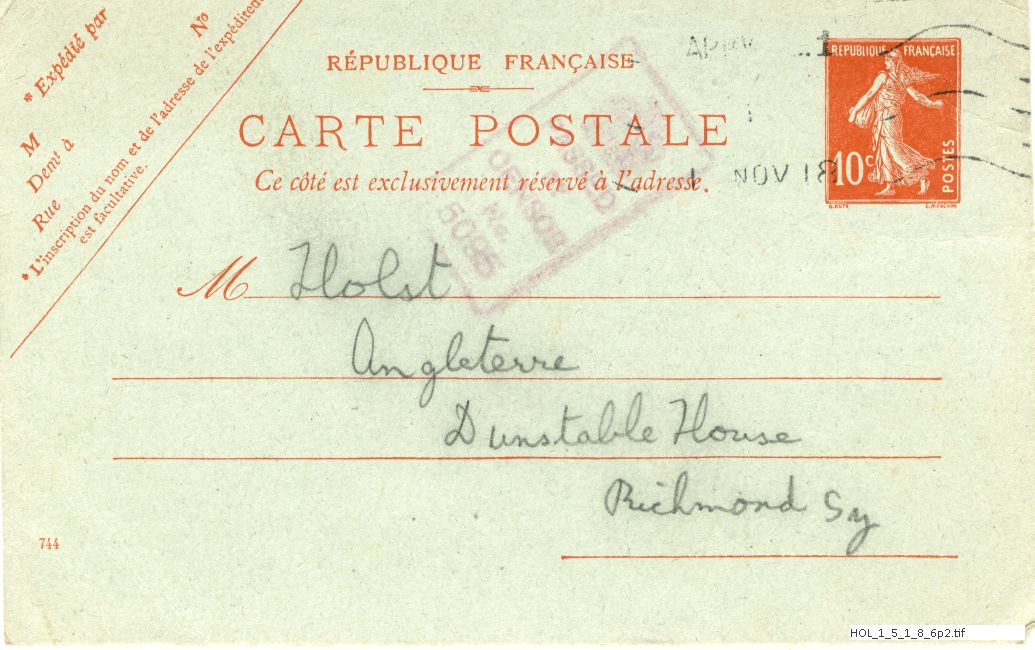 * Expédié par
N°
M
Demt à
Rue
* L'inscription du nom et de l'adresse de l'expéditeur
est facultative.
RÉPUBLIQUE FRANÇAISE
CARTE POSTALE
Ce côté est exclusivement réservé à l'adresse.
1
1 NOV 18
RÉPUBLIQUE FRANÇAISE
10c
POSTES
M Holst
Angleterre
Dunstable House
Richmond Sy
744
HOL_1_5_1_8_6p2.tif